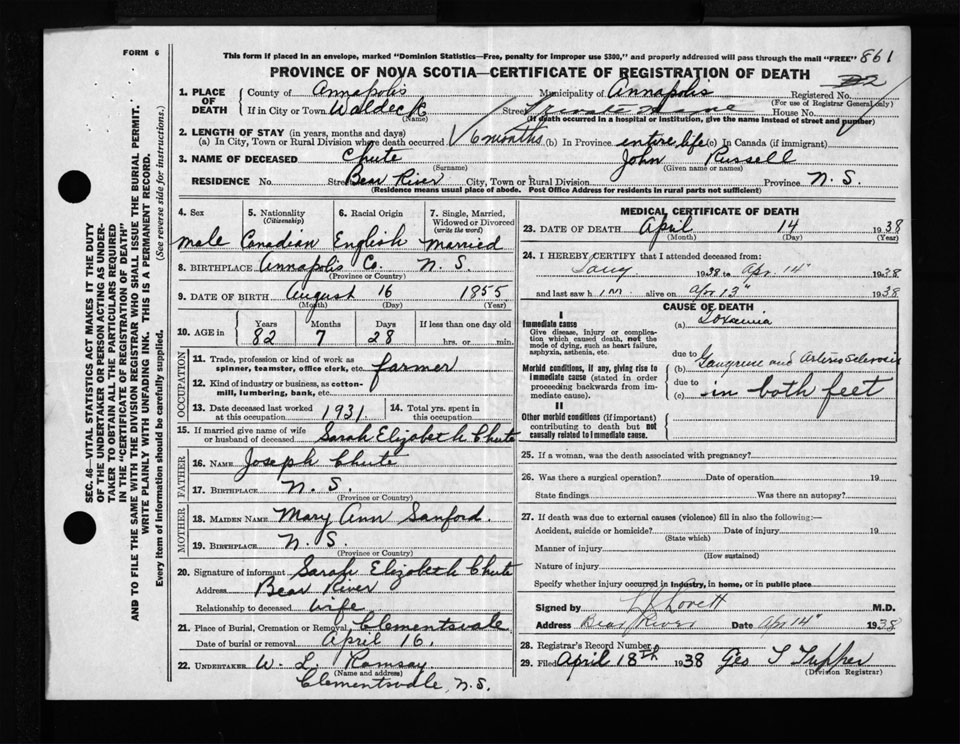 FORM 6
This form if placed in an envelope, marked "Dominion Statistics—Free, penalty for improper use $300," and properly addressed will pass through the mail "FREE" 861
PROVINCE OF NOVA SCOTIA—CERTIFICATE OF REGISTRATION OF DEATH
1. PLACE OF DEATH County of Annapolis Municipality of Annapolis Registered No.
(For use of Registrar General only)
If in City or Town Waldeck Street Private Home House No.
(Name) (If death occurred in a hospital or institution, give the name instead of street and number)
2. LENGTH OF STAY (in years, months and days)
(a) In City, Town or Rural Division where death occurred 6 months (b) In Province entire life (c) In Canada (if immigrant)
3. NAME OF DECEASED Chute John Russell
(Surname) (Given name or names)
RESIDENCE No. Street Bear River City, Town or Rural Division Province N. S.
(Residence means usual place of abode. Post Office Address for residents in rural parts not sufficient)
SEC. 46—VITAL STATISTICS ACT MAKES IT THE DUTY
OF THE UNDERTAKER OR PERSON ACTING AS UNDER-
TAKER TO OBTAIN ALL THE PARTICULARS REQUIRED
IN THE "CERTIFICATE OF REGISTRATION OF DEATH"
AND TO FILE THE SAME WITH THE DIVISION REGISTRAR WHO SHALL ISSUE THE BURIAL PERMIT.
WRITE PLAINLY WITH UNFADING INK. THIS IS A PERMANENT RECORD.
Every item of information should be carefully supplied. (See reverse side for instructions.)
4. Sex 5. Nationality (Citizenship) 6. Racial Origin 7. Single, Married, Widowed or Divorced (write the word)
Male Canadian English Married
8. BIRTHPLACE Annapolis Co. N. S.
(Province or Country)
9. DATE OF BIRTH August 16 1855
(Month) (Day) (Year)
10. AGE in Years Months Days If less than one day old
82 7 28 hrs. or min.
OCCUPATION
11. Trade, profession or kind of work as spinner, teamster, office clerk, etc. farmer
12. Kind of industry or business, as cotton-mill, lumbering, bank, etc.
13. Date deceased last worked at this occupation 1931 14. Total yrs. spent in this occupation
15. If married give name of wife or husband of deceased Sarah Elizabeth Chute
FATHER
16. NAME Joseph Chute
17. BIRTHPLACE N. S.
(Province or Country)
MOTHER
18. MAIDEN NAME Mary Ann Sanford
19. BIRTHPLACE N. S.
(Province or Country)
20. Signature of informant Sarah Elizabeth Chute
Address Bear River
Relationship to deceased wife
21. Place of Burial, Cremation or Removal Clementsvale
Date of burial or removal April 16,
22. UNDERTAKER W. L. Ramsay
(Name and address)
Clementsvale, N. S.
MEDICAL CERTIFICATE OF DEATH
23. DATE OF DEATH April 14 1938
(Month) (Day) (Year)
24. I HEREBY CERTIFY that I attended deceased from:
1938 to Apr. 14" 1938
and last saw h im alive on Apr 13" 1938
CAUSE OF DEATH
I
Immediate cause
Give disease, injury or complication which caused death, not the mode of dying, such as heart failure, asphyxia, asthenia, etc.
(a) Toxaemia
due to
Morbid conditions, if any, giving rise to immediate cause (stated in order proceeding backwards from immediate cause).
(b) Gangrene and Arterio Sclerosis
due to
(c) in both feet
II
Other morbid conditions (if important) contributing to death but not causally related to immediate cause.
25. If a woman, was the death associated with pregnancy?
26. Was there a surgical operation? Date of operation 19
State findings Was there an autopsy?
27. If death was due to external causes (violence) fill in also the following:—
Accident, suicide or homicide? Date of injury 19
(State which)
Manner of injury
(How sustained)
Nature of injury
Specify whether injury occurred in industry, in home, or in public place
Signed by Lovett M.D.
Address Bear River Date Apr 14" 1938
28. Registrar's Record Number
29. Filed April 18th 1938 Geo S Tupper
(Division Registrar)